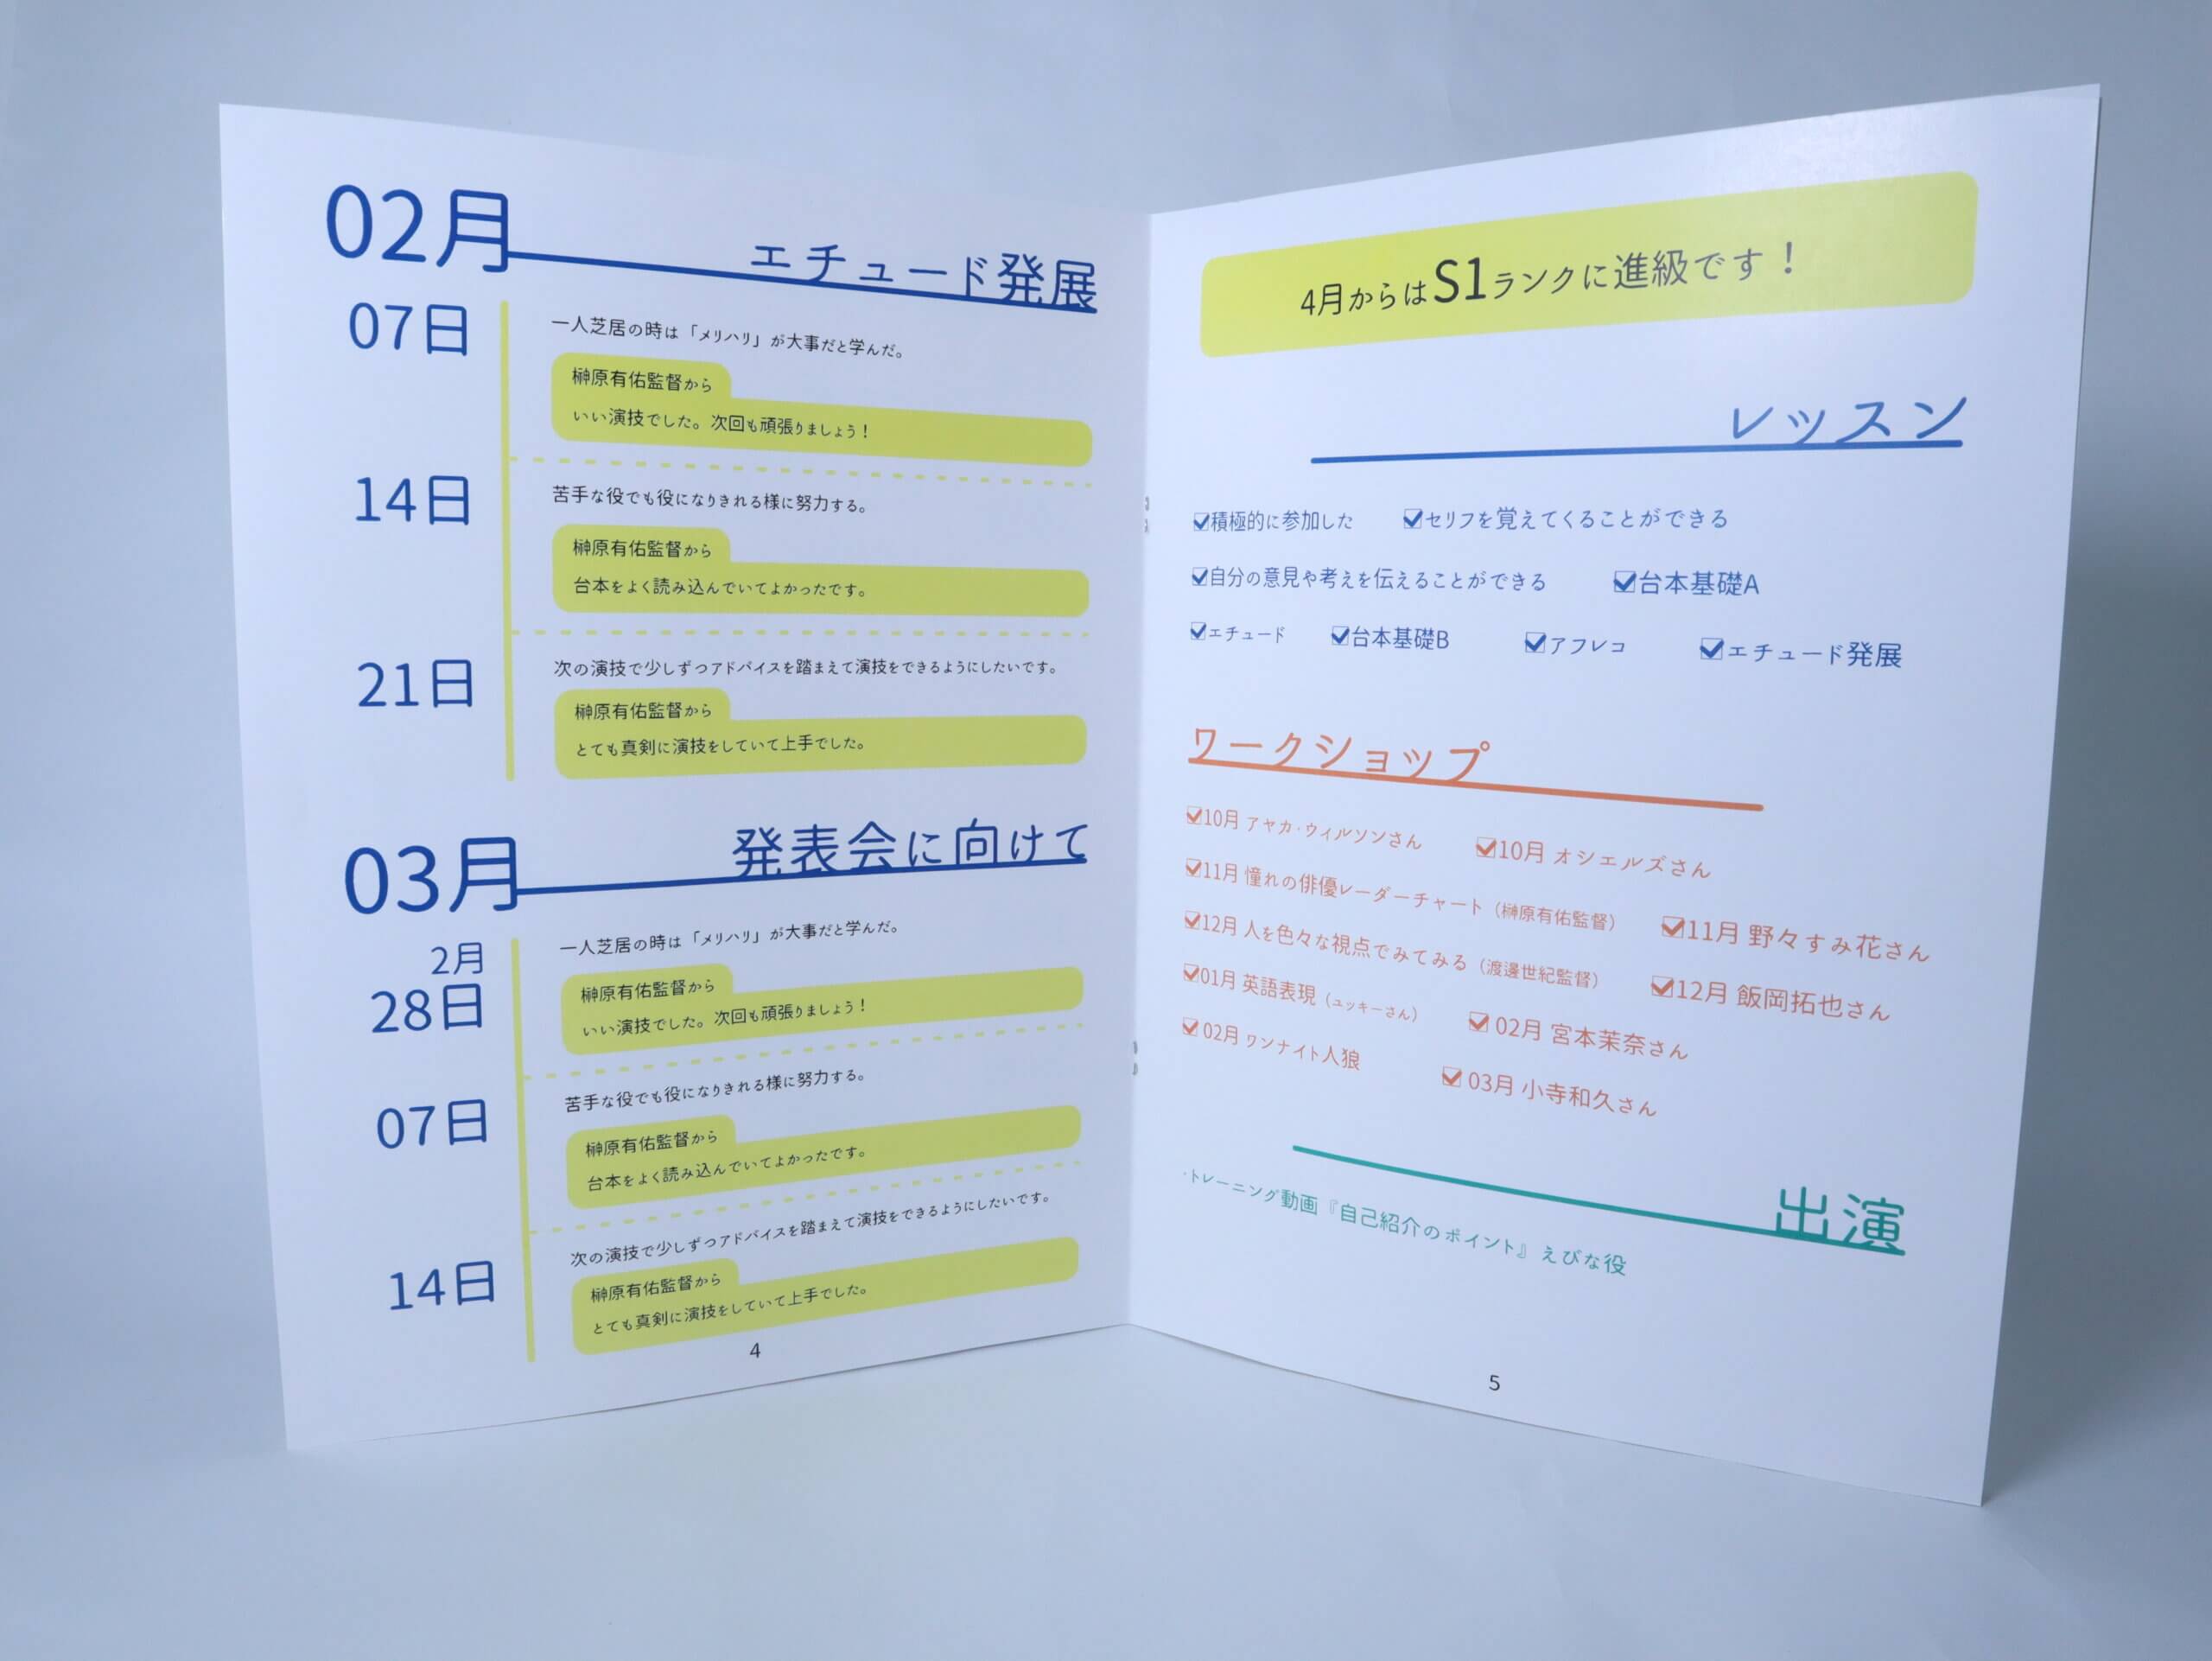 02月
エチュード発展
07日
一人芝居の時は「メリハリ」が大事だと学んだ。
榊原有佑監督から
いい演技でした。次回も頑張りましょう！
14日
苦手な役でも役になりきれる様に努力する。
榊原有佑監督から
台本をよく読み込んでいてよかったです。
21日
次の演技で少しずつアドバイスを踏まえて演技をできるようにしたいです。
榊原有佑監督から
とても真剣に演技をしていて上手でした。
03月
発表会に向けて
2月
28日
一人芝居の時は「メリハリ」が大事だと学んだ。
榊原有佑監督から
いい演技でした。次回も頑張りましょう！
07日
苦手な役でも役になりきれる様に努力する。
榊原有佑監督から
台本をよく読み込んでいてよかったです。
14日
次の演技で少しずつアドバイスを踏まえて演技をできるようにしたいです。
榊原有佑監督から
とても真剣に演技をしていて上手でした。
4
4月からはS1ランクに進級です！
レッスン
☑積極的に参加した ☑セリフを覚えてくることができる
☑自分の意見や考えを伝えることができる ☑台本基礎A
☑エチュード ☑台本基礎B ☑アフレコ ☑エチュード発展
ワークショップ
☑10月 アヤカ・ウィルソンさん ☑10月 オシエルズさん
☑11月 憧れの俳優レーダーチャート（榊原有佑監督） ☑11月 野々すみ花さん
☑12月 人を色々な視点でみてみる（渡邊世紀監督） ☑12月 飯岡拓也さん
☑01月 英語表現（ユッキーさん） ☑02月 宮本茉奈さん
☑02月 ワンナイト人狼 ☑03月 小寺和久さん
出演
・トレーニング動画『自己紹介のポイント』えびな役
5